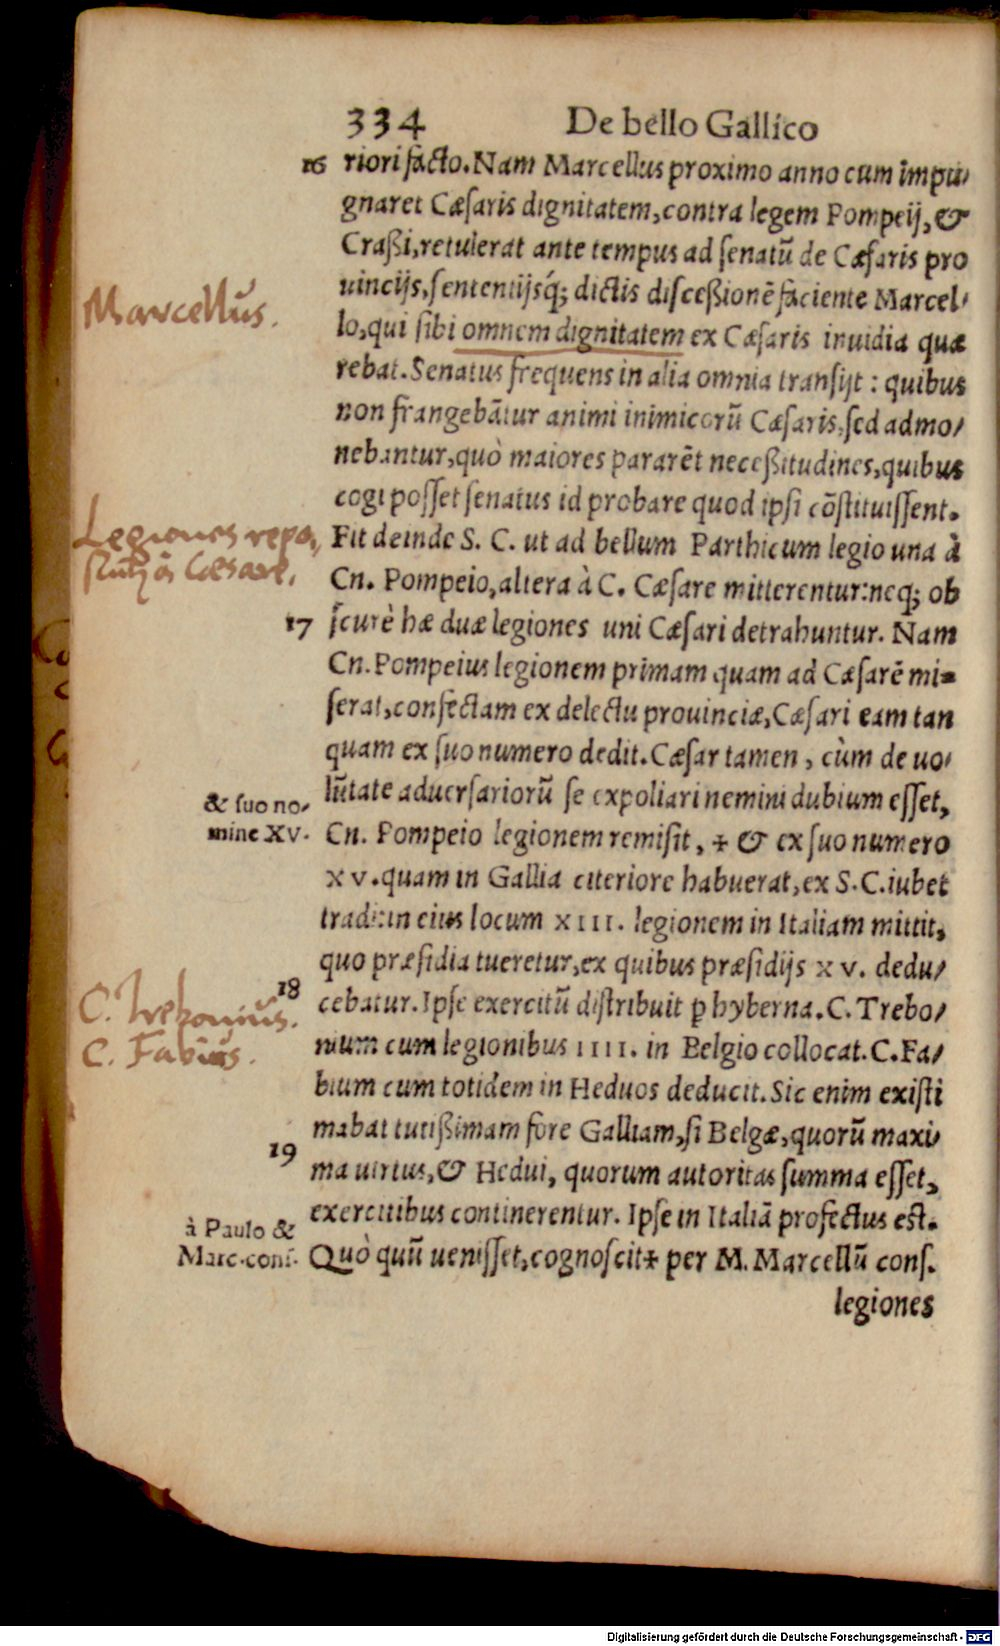 334 De bello Gallico
16 riori facto. Nam Marcellus proximo anno cum impu/
gnaret Cæſaris dignitatem, contra legem Pompeij, &
Craßi, retulerat ante tempus ad ſenatū de Cæſaris pro
uincijs, ſententijsq́; dictis diſceßionē faciente Marcel/
Marcellus.
lo, qui ſibi omnem dignitatem ex Cæſaris inuidia quæ
rebat. Senatus frequens in alia omnia tranſijt : quibus
non frangebātur animi inimicorū Cæſaris, ſed admo/
nebantur, quò maiores pararēt neceßitudines, quibus
cogi poſſet ſenatus id probare quod ipſi cōſtituiſſent.
Legiones repo,
Fit deinde S. C. ut ad bellum Parthicum legio una à
à Cæsare.
Cn. Pompeio, altera à C. Cæſare mitterentur: neq; ob
17 ſcurè hæ duæ legiones uni Cæſari detrahuntur. Nam
Cn. Pompeius legionem primam quam ad Cæſarē mi-
ſerat, confectam ex delectu prouinciæ, Cæſari eam tan
quam ex ſuo numero dedit. Cæſar tamen, cùm de uo/
lūtate aduerſariorū ſe expoliari nemini dubium eſſet,
& ſuo no/
mine XV.
Cn. Pompeio legionem remiſit, + & ex ſuo numero
XV. quam in Gallia citeriore habuerat, ex S. C. iubet
tradi: in eius locum XIII. legionem in Italiam mittit,
quo præſidia tueretur, ex quibus præſidijs XV. dedu/
18 cebatur. Ipſe exercitū diſtribuit ꝑ hyberna. C. Trebo/
C. Trebonius.
nium cum legionibus IIII. in Belgio collocat. C. Fa/
C. Fabius.
bium cum totidem in Heduos deducit. Sic enim exiſti
mabat tutißimam fore Galliam, ſi Belgæ, quorū maxi/
19 ma uirtus, & Hedui, quorum autoritas ſumma eſſet,
exercitibus continerentur. Ipſe in Italiā profectus eſt.
à Paulo &
Marc. conſ.
Quò quū ueniſſet, cognoſcit + per M. Marcellū conſ.
legiones
Digitalisierung gefördert durch die Deutsche Forschungsgemeinschaft - DFG